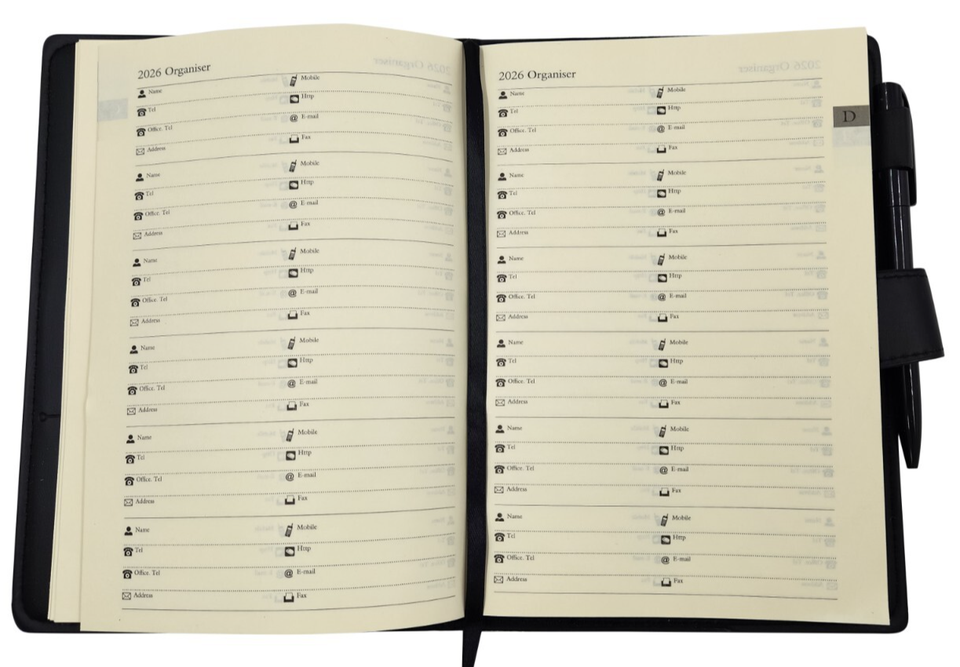 2026 Organiser
Name Mobile
Tel Http
Office. Tel @ E-mail
Address Fax
Name Mobile
Tel Http
Office. Tel @ E-mail
Address Fax
Name Mobile
Tel Http
Office. Tel @ E-mail
Address Fax
Name Mobile
Tel Http
Office. Tel @ E-mail
Address Fax
Name Mobile
Tel Http
Office. Tel @ E-mail
Address Fax
Name Mobile
Tel Http
Office. Tel @ E-mail
Address Fax
2026 Organiser
Name Mobile
Tel Http
D
Office. Tel @ E-mail
Address Fax
Name Mobile
Tel Http
Office. Tel @ E-mail
Address Fax
Name Mobile
Tel Http
Office. Tel @ E-mail
Address Fax
Name Mobile
Tel Http
Office. Tel @ E-mail
Address Fax
Name Mobile
Tel Http
Office. Tel @ E-mail
Address Fax
Name Mobile
Tel Http
Office. Tel @ E-mail
Address Fax